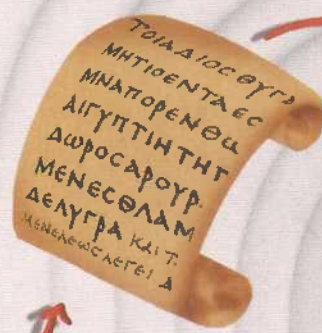 ΤΟΙΑΔΙΟCΘΥΓΡ
ΜΗΤΙΟΕΝΤΑΕC
ΜΝΑΠΟΡΕΝΘΩ
ΑΙΓΥΠΤΙΗΤΗΓ
ΔωΡΟCΑΡΟΥΡ.
ΜΕΝΕCΘΛΑΜ
ΔΕΛΥΓΡΑ ΚΑΙ Τ.
ΜΕΝΕΛΕωC ΛΕΓΕΙ Δ